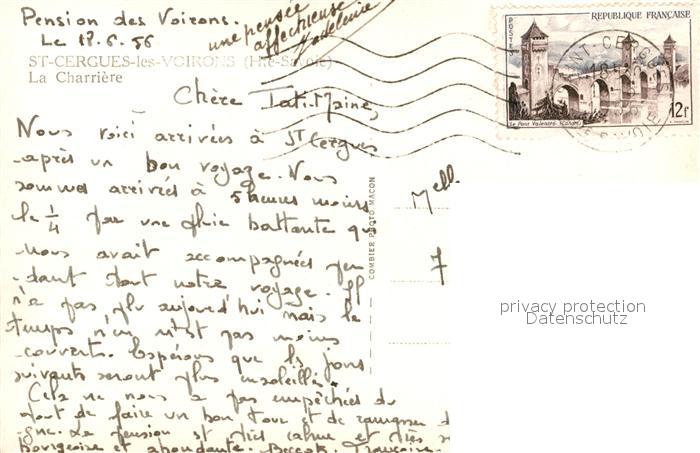 Pension des Voirons.
Le 18.6.56
une pensée
affectueuse
Madeleine
ST-CERGUES-les-VOIRONS (Hte-Savoie)
La Charrière
Chère Tati Maine,
Nous voici arrivées à St Cergues
après un bon voyage. Nous
sommes arrivées à 5 heures moins
le 1/4 par une pluie battante qui
nous avait accompagnées pen
-dant tout notre voyage. Il
n'a pas plu aujourd'hui mais le
temps n'en n'est pas moins
couvert. Espérons que les jours
suivants seront plus ensoleillés.
Cela ne nous a pas empêchées du
tout de faire un bon tour et de
-gne. La pension est très calme et très
bourgeoise et abondante. Françoise
COMBIER PHOTO MACON
Melle
7
POSTES
REPUBLIQUE FRANÇAISE
12f
Le Pont Valentré (Cahors)
privacy protection
Datenschutz